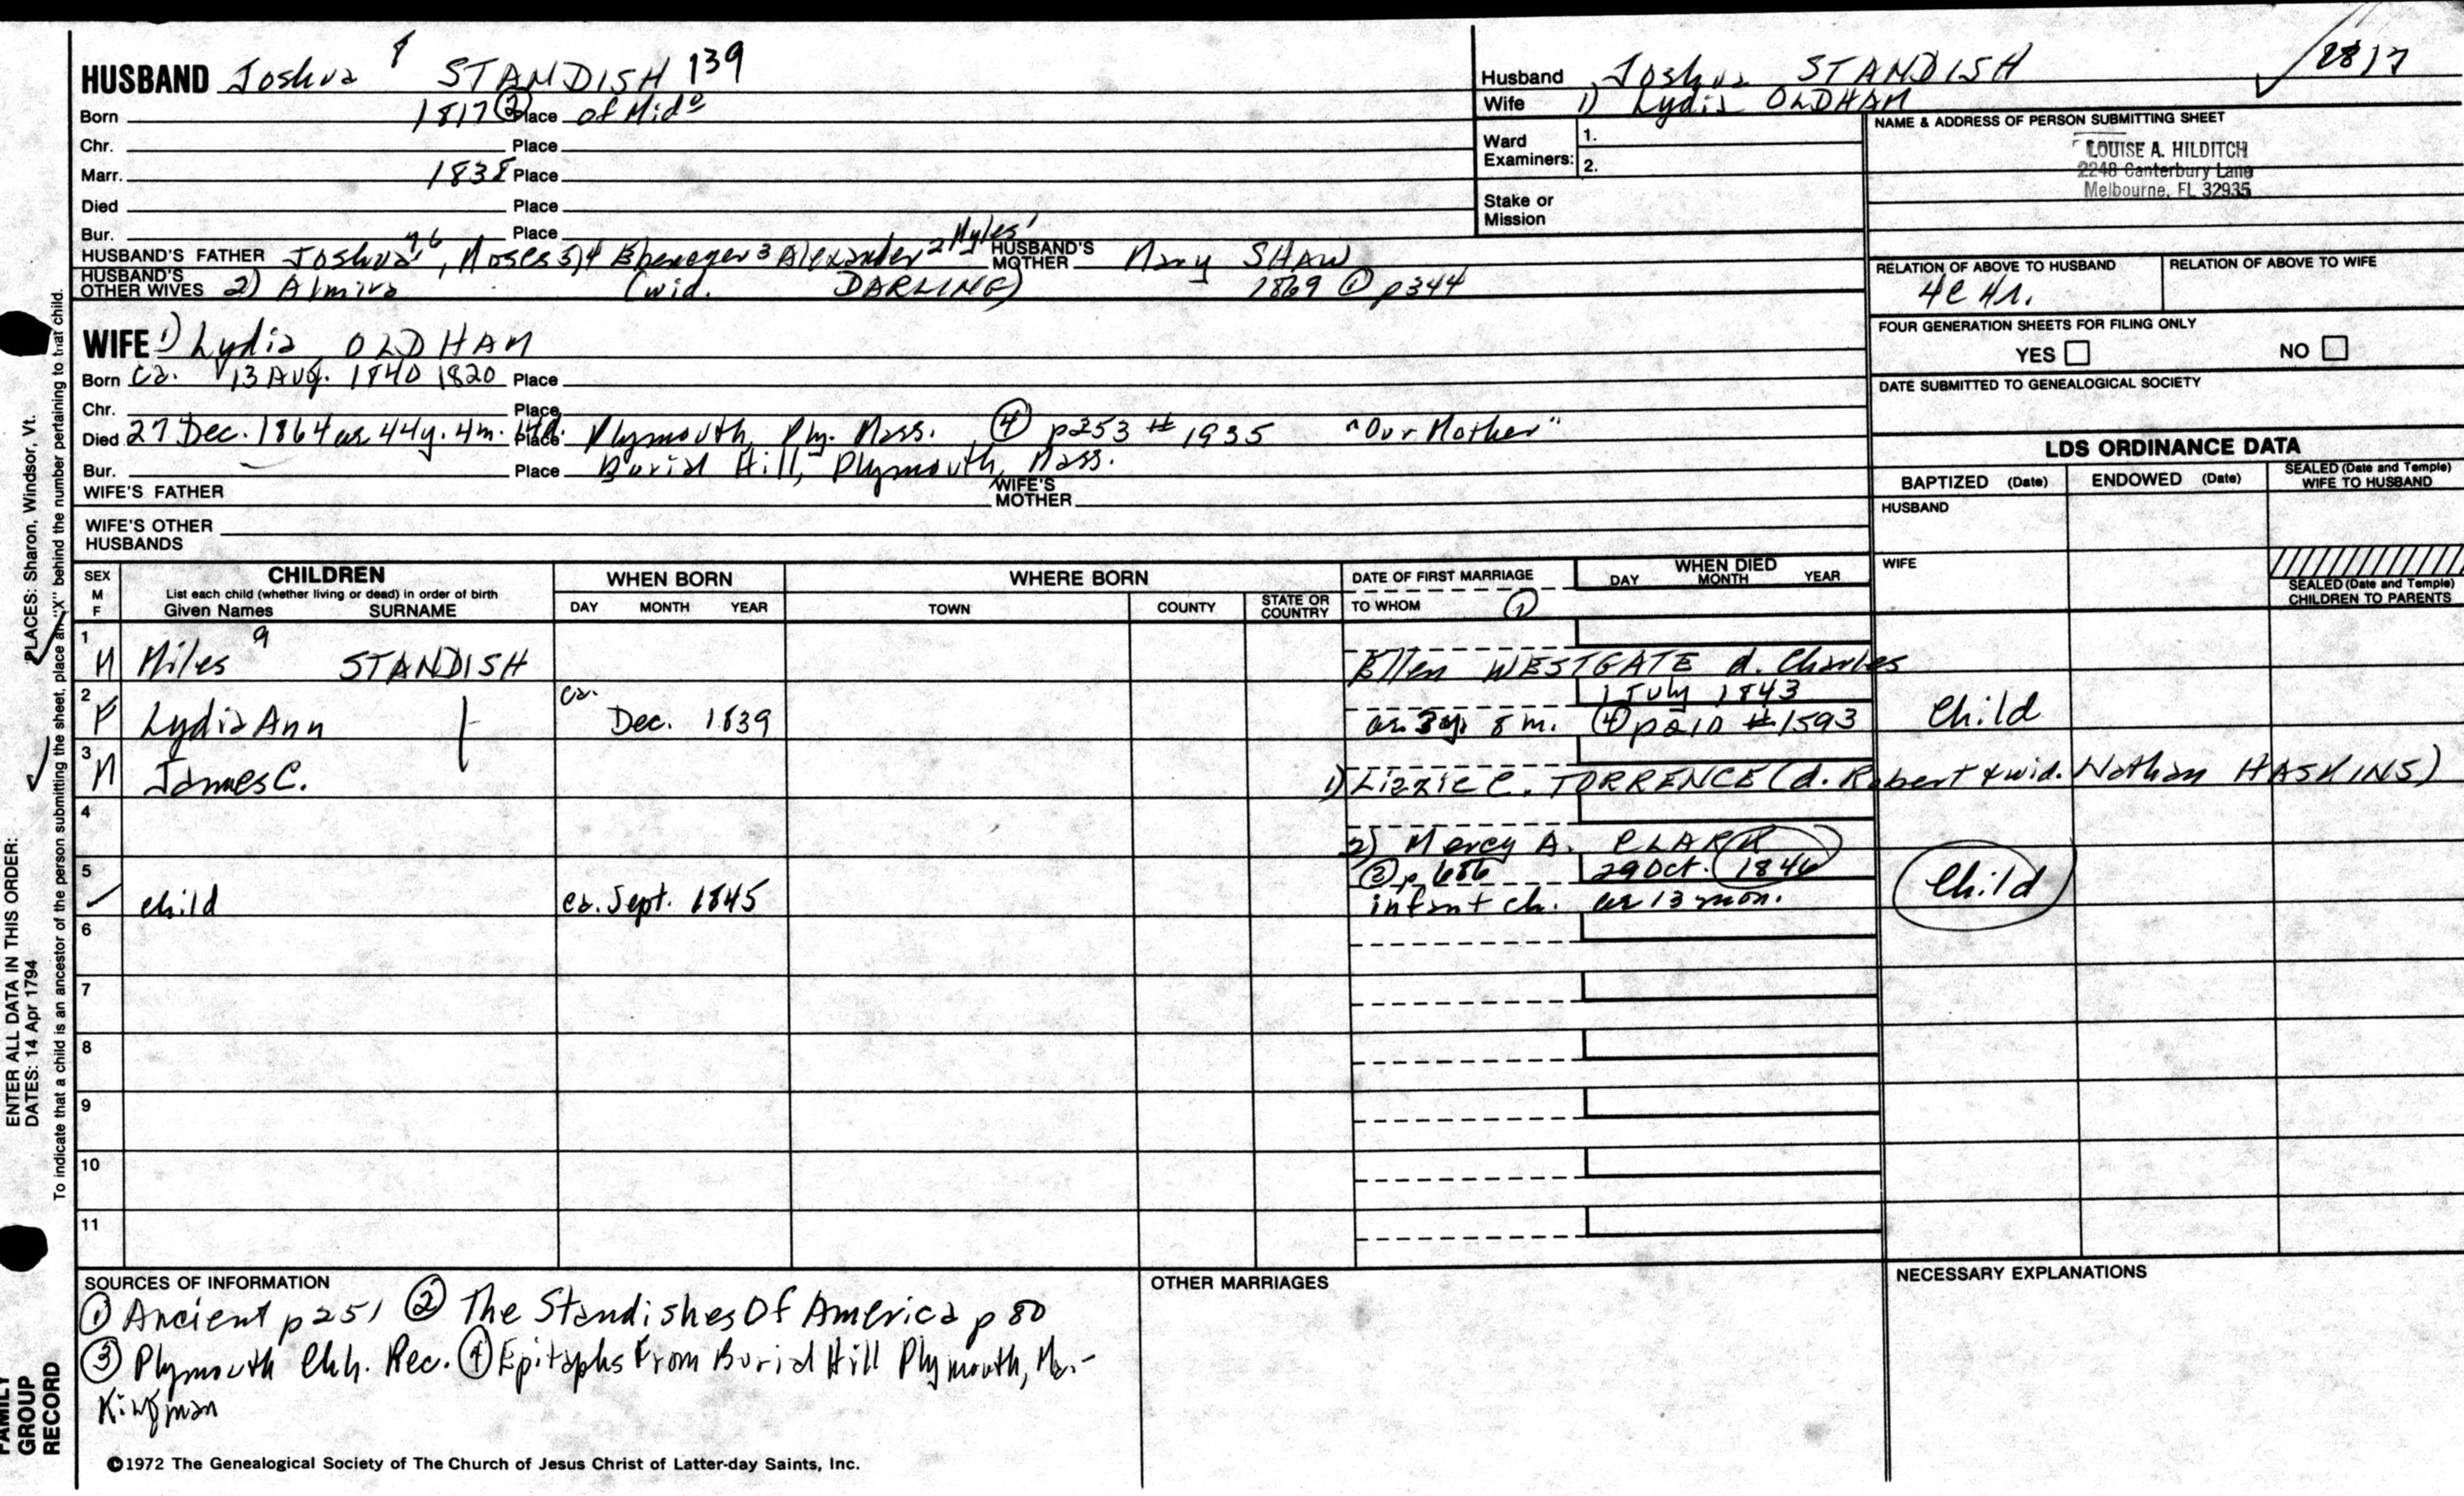 HUSBAND Joshua 8 STANDISH 139
Born 1817 ② Place of Mido
Chr. Place
Marr. 1838 Place
Died Place
Bur. Place
HUSBAND'S FATHER Joshua 7, 6 Moses 5, 4 Ebenezer 3 Alexander 2 Myles 1 HUSBAND'S MOTHER Mary SHAW
HUSBAND'S OTHER WIVES 2) Almira (wid. DARLING) 1869 ① p344
WIFE 1) Lydia OLDHAM
Born ca. 13 Aug. 1840 1820 Place
Chr. Place
Died 27 Dec. 1864 ae 44y. 4m. 14d. Place Plymouth, Ply. Mass. ④ p253 # 1935 "Our Mother"
Bur. Place Burial Hill, Plymouth, Mass.
WIFE'S FATHER WIFE'S MOTHER
WIFE'S OTHER HUSBANDS
Husband Joshua STANDISH 1817
Wife 1) Lydia OLDHAM
Ward Examiners: 1.
2.
Stake or Mission
NAME & ADDRESS OF PERSON SUBMITTING SHEET
LOUISE A. HILDITCH
2248 Canterbury Lane
Melbourne, FL 32935
RELATION OF ABOVE TO HUSBAND RELATION OF ABOVE TO WIFE
4C 4r.
FOUR GENERATION SHEETS FOR FILING ONLY
YES NO
DATE SUBMITTED TO GENEALOGICAL SOCIETY
LDS ORDINANCE DATA
BAPTIZED (Date) ENDOWED (Date) SEALED (Date and Temple) WIFE TO HUSBAND
HUSBAND
WIFE
SEALED (Date and Temple) CHILDREN TO PARENTS
SEX M F
CHILDREN
List each child (whether living or dead) in order of birth
Given Names SURNAME
WHEN BORN
DAY MONTH YEAR
WHERE BORN
TOWN COUNTY STATE OR COUNTRY
DATE OF FIRST MARRIAGE
TO WHOM ①
WHEN DIED
DAY MONTH YEAR
1 M Miles 9 STANDISH Ellen WESTGATE d. Charles
2 F Lydia Ann ca. Dec. 1839 1 July 1843
ae 3y. 8 m. ④ p210 # 1593 Child
3 M James C. 1) Lizzie C. TORRENCE (d. Robert & wid. Nathan HASKINS)
4 2) Mercy A. CLARK
5 child ca. Sept. 1845 ③ p. 686 29 Oct. 1846
infant ch. ae 13 mon. Child
6
7
8
9
10
11
SOURCES OF INFORMATION
① Ancient p251 ② The Standishes Of America p 80
③ Plymouth Chh. Rec. ④ Epitaphs From Burial Hill Plymouth, Ma.-
Kingman
OTHER MARRIAGES
NECESSARY EXPLANATIONS
©1972 The Genealogical Society of The Church of Jesus Christ of Latter-day Saints, Inc.
FAMILY GROUP RECORD
ENTER ALL DATA IN THIS ORDER:
DATES: 14 Apr 1794
PLACES: Sharon, Windsor, Vt.
To indicate that a child is an ancestor of the person submitting the sheet, place an "X" behind the number pertaining to that child.